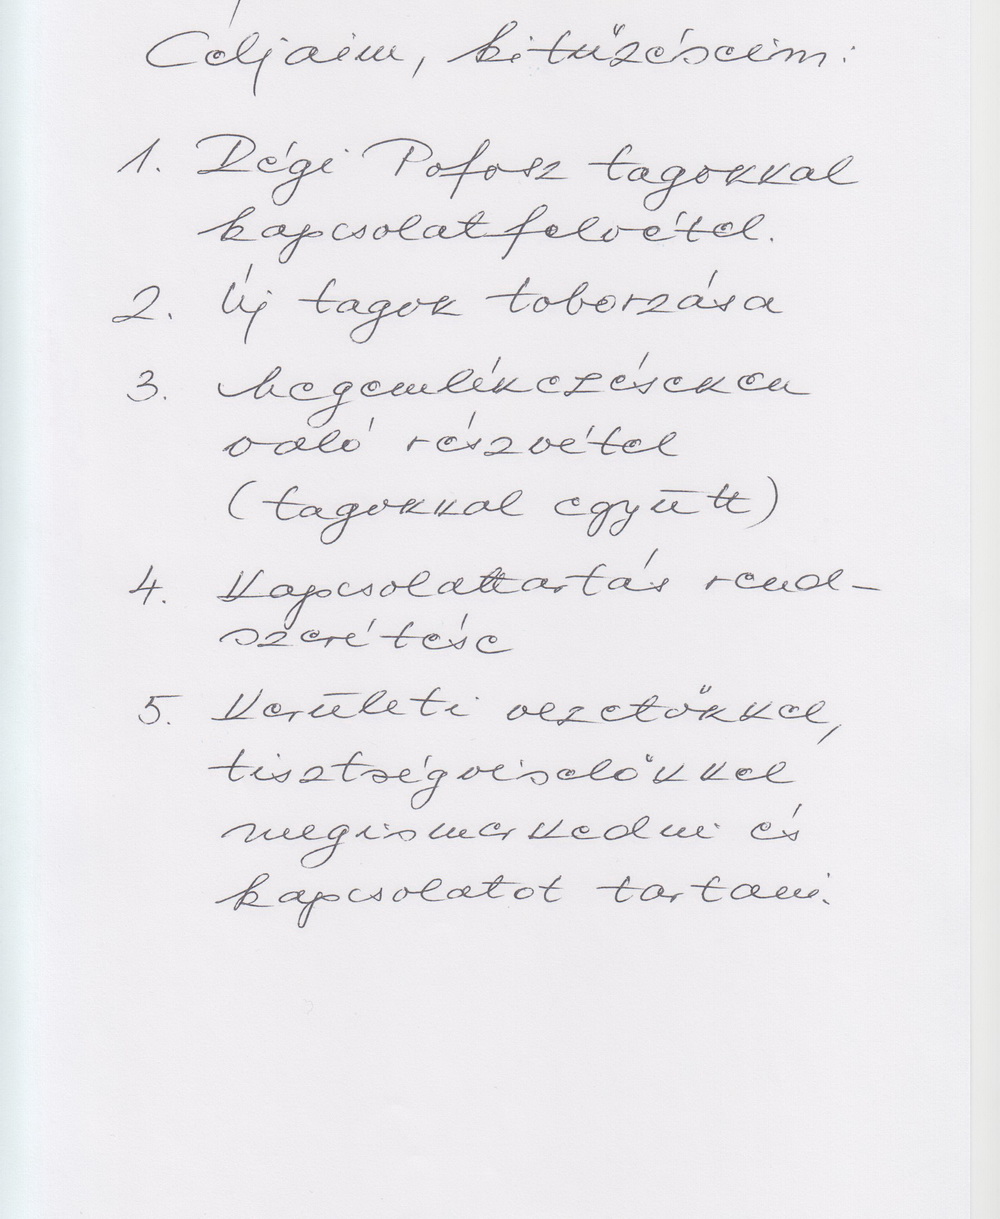 Céljaim, kitűzéseim:
1. Régi Pofosz tagokkal
kapcsolatfelvétel.
2. Új tagok toborzása
3. Megemlékezéseken
való részvétel
(tagokkal együtt)
4. Kapcsolattartás rend-
szerétése
5. Kerületi vezetőkkel,
tisztségviselőkkel
megismerkedni és
kapcsolatot tartani.